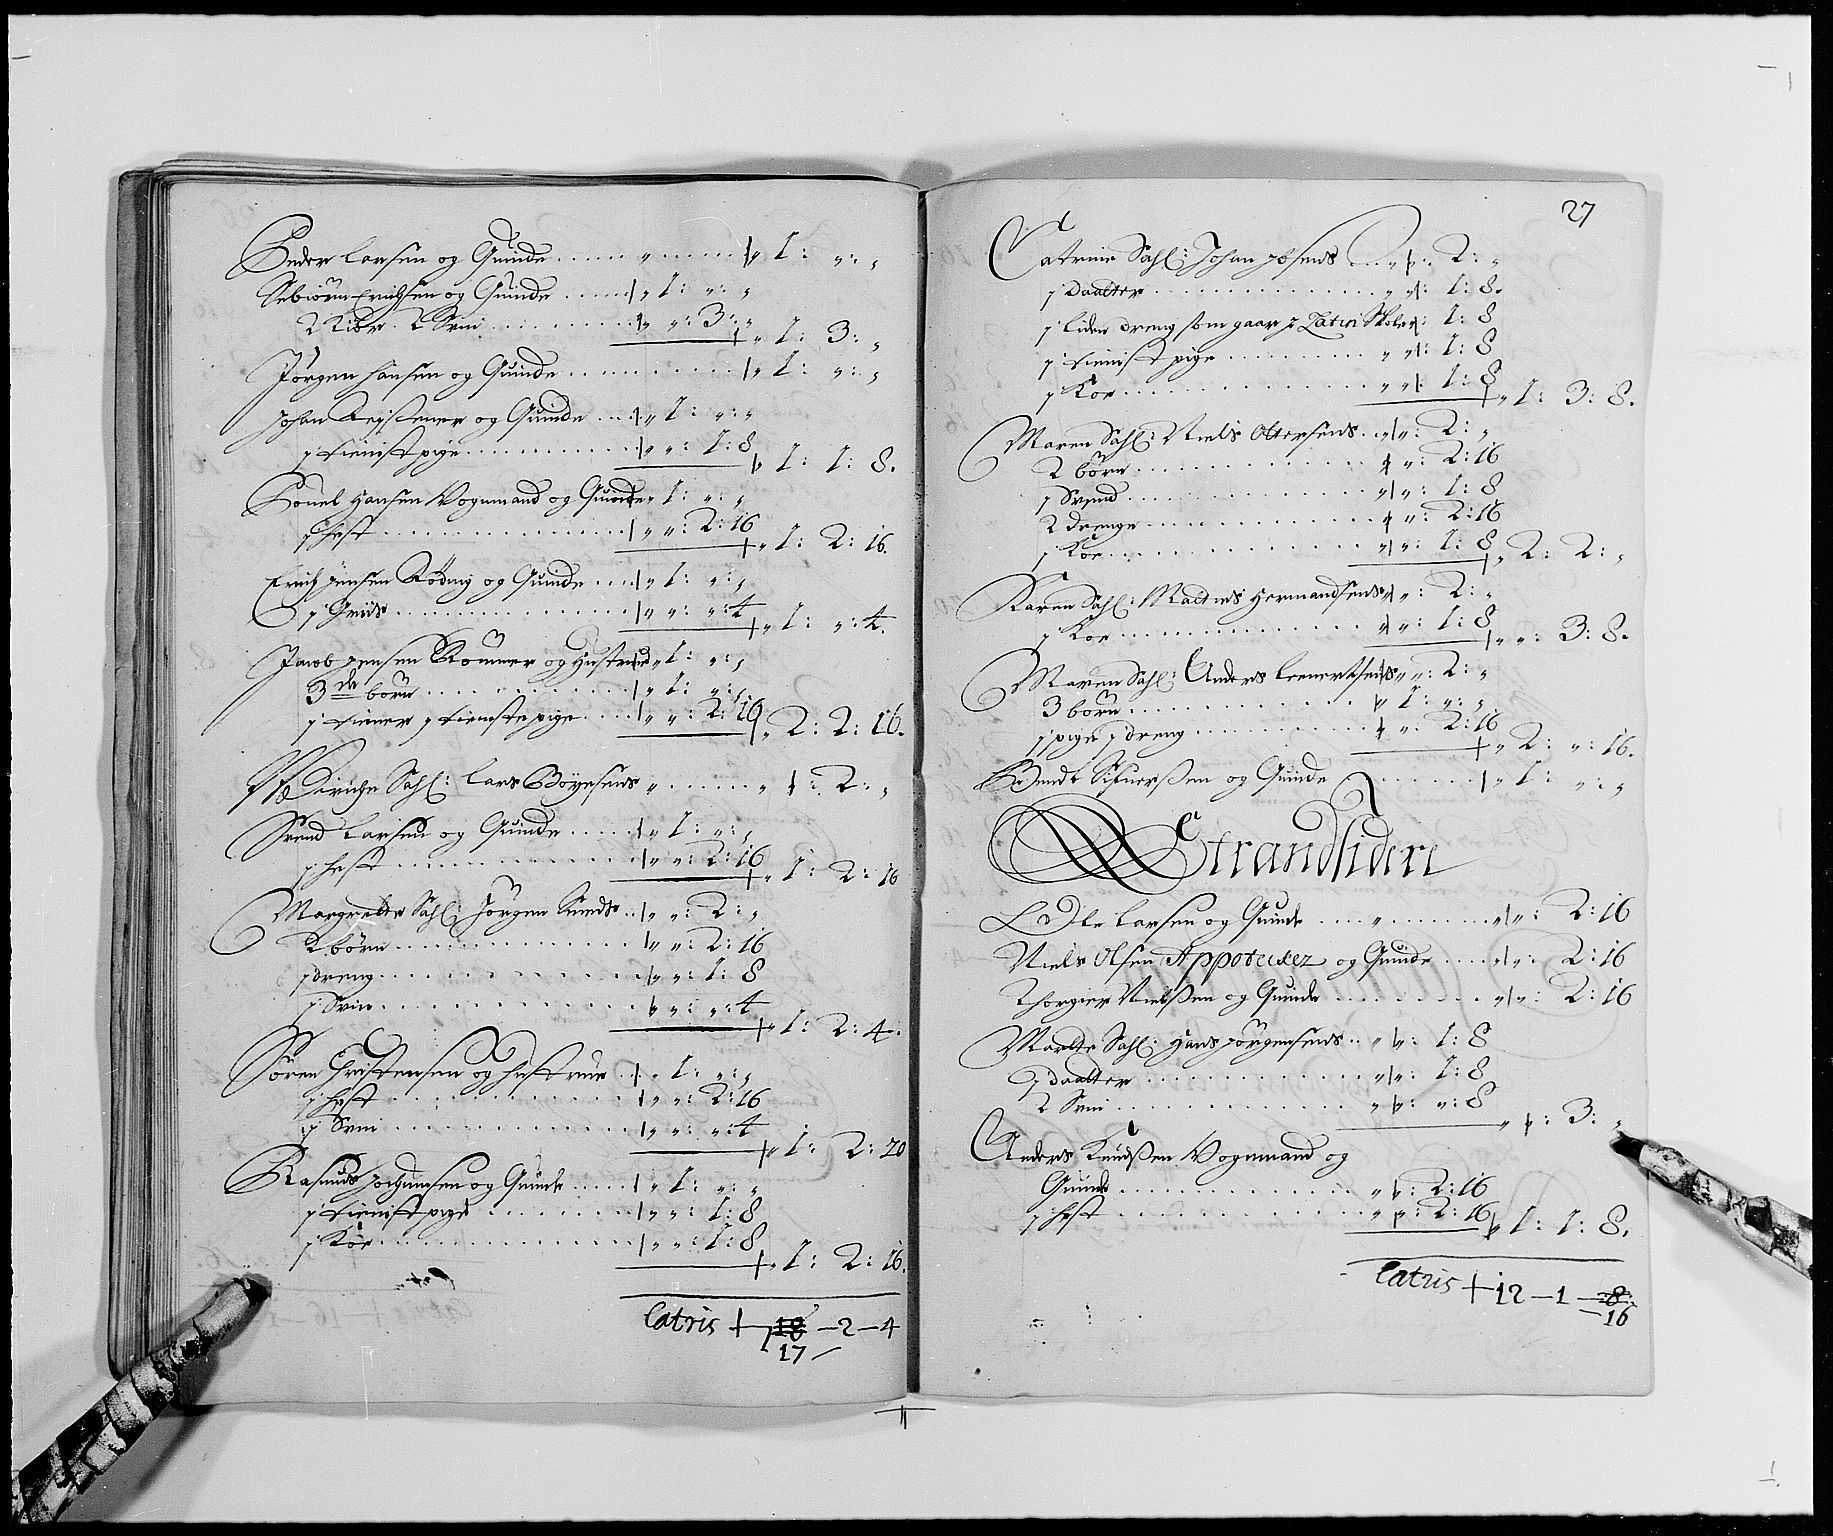 Peder Larsen og Quinde ...... „ ...... „ 1: „: „
Sebiörn Erichsen og Quinde ..... „ 1: „: „
2 Kiör. 2 Svin ........... „ „: 3: „ „ 1: 3: „
Jörgen Hansen og Quinde ........... „ 1: „: „
Johan Keysener og Quinde .... „ 1: „: „
1 tienist pige ............ „ „: 1: 8 „ 1: 1: 8.
Pouel Hansen Vognmand og Quinde „ 1: „: „
1 hest ................ „ „: 2: 16 „ 1: 2: 16.
Erich Jensen Röding og Quinde .... „ 1: „: „
1 Griis ............. „ „: „: 4 „ 1: „: 4.
Jacob Jensen Rommer og Hustrue „ 1: „: „
3de börn ............ „ 1: „: „
1 tiener 1 tienste pige ..... „ „: 2: 16 „ 2: 2: 16.
Wiriche Sahl: Lars Böyesens „ ....... „ „: 2: „
Svend Larsen og Quinde ..... „ 1: „: „
1 hest ............ „ „: 2: 16 „ 1: 2: 16
Margrette Sahl: Jörgen Sunds .. „ „: 2: „
2 börn ............. „ „: 2: 16
1 dreng ............. „ „: 1: 8
1 Sviin ............. „ „: „: 4 „ 1: 2: 4.
Sören Christensen og hustrue .. „ 1: „: „
1 hest ............. „ „: 2: 16
1 Svin ............. „ „: „: 4 „ 1: 2: 20
Rasmus Jochumsen og Quinde ..... „ 1: „: „
1 tienist pige ......... „ „: 1: 8
1 Koe ............. „ „: 1: 8 „ 1: 2: 16.
Latris 18 – 2 – 4
17
27
Catrine Sahl: Johan Josens ... „ „: 2: „
1 Daatter ............. „ „: 1: 8.
1 liden dreng som gaar i Latin Skole „: 1: 8
1 tienist pige ......... „ „: 1: 8
1 Koe ............. „ „: 1: 8 „ 1: 3: 8.
Maren Sahl: Niels Ottersens .. „ „: 2: „
2 börn ............. „ „: 2: 16
1 Svend ............. „ „: 1: 8
2 drenge ............. „ „: 2: 16
1 Koe ............. „ „: 1: 8 „ 2: 2: „
Karen Sahl: Mattis Hermandsens „ „: 2: „
1 Koe ............. „ „: 1: 8 „ „: 3: 8.
Maren Sahl: Anders Leenertsens „ „: 2: „
3 börn ............. „ 1: „: „
1 pige 1 dreng ......... „ „: 2: 16 „ 2: „: 16.
Bendt Sifuerssen og Quinde ...... „ 1: „: „
Strandsidere
Ole Larsen og Quinde .... „ ....... „ „: 2: 16
Niels Olsen Appotecker og Quinde .... „ „: 2: 16
Thorgier Nielssen og Quinde ........ „ „: 2: 16
Marte Sahl: Hans Jörgensens .. „ „: 1: 8
1 Daatter ............. „ „: 1: 8
2 Svin ............. „ „: „: 8 „ „: 3: „
Anders Knudssen Vognmand og
Quinde ............. „ „: 2: 16
1 hest ............. „ „: 2: 16 „ 1: 1: 8.
Latris 12 – 1 – 8
– 16